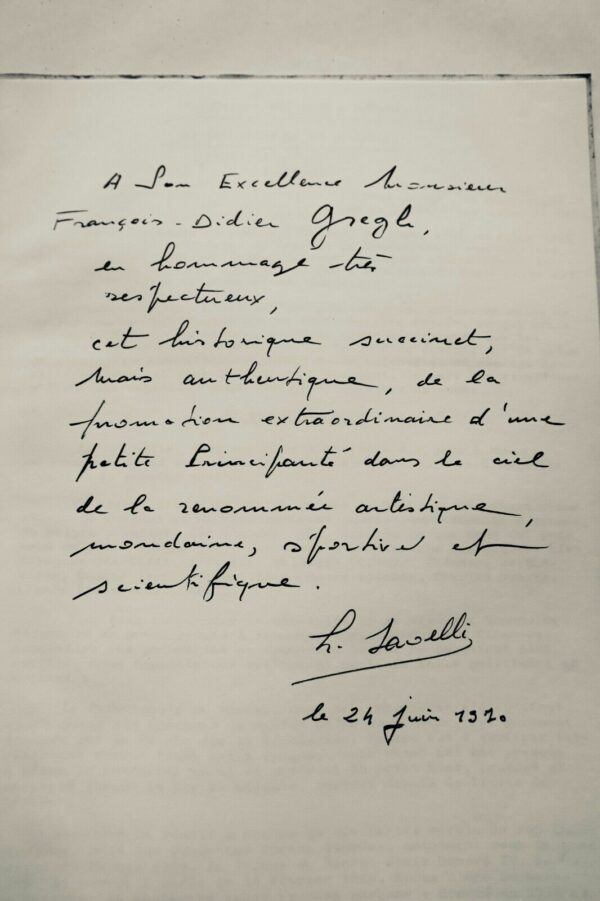 A Son Excellence Monsieur
François-Didier Gregh,
en hommage très
respectueux,
cet historique succinct,
mais authentique, de la
promotion extraordinaire d'une
petite Principauté dans le ciel
de la renommée artistique,
mondaine, sportive et
scientifique.
h. Savelli
le 24 juin 1970